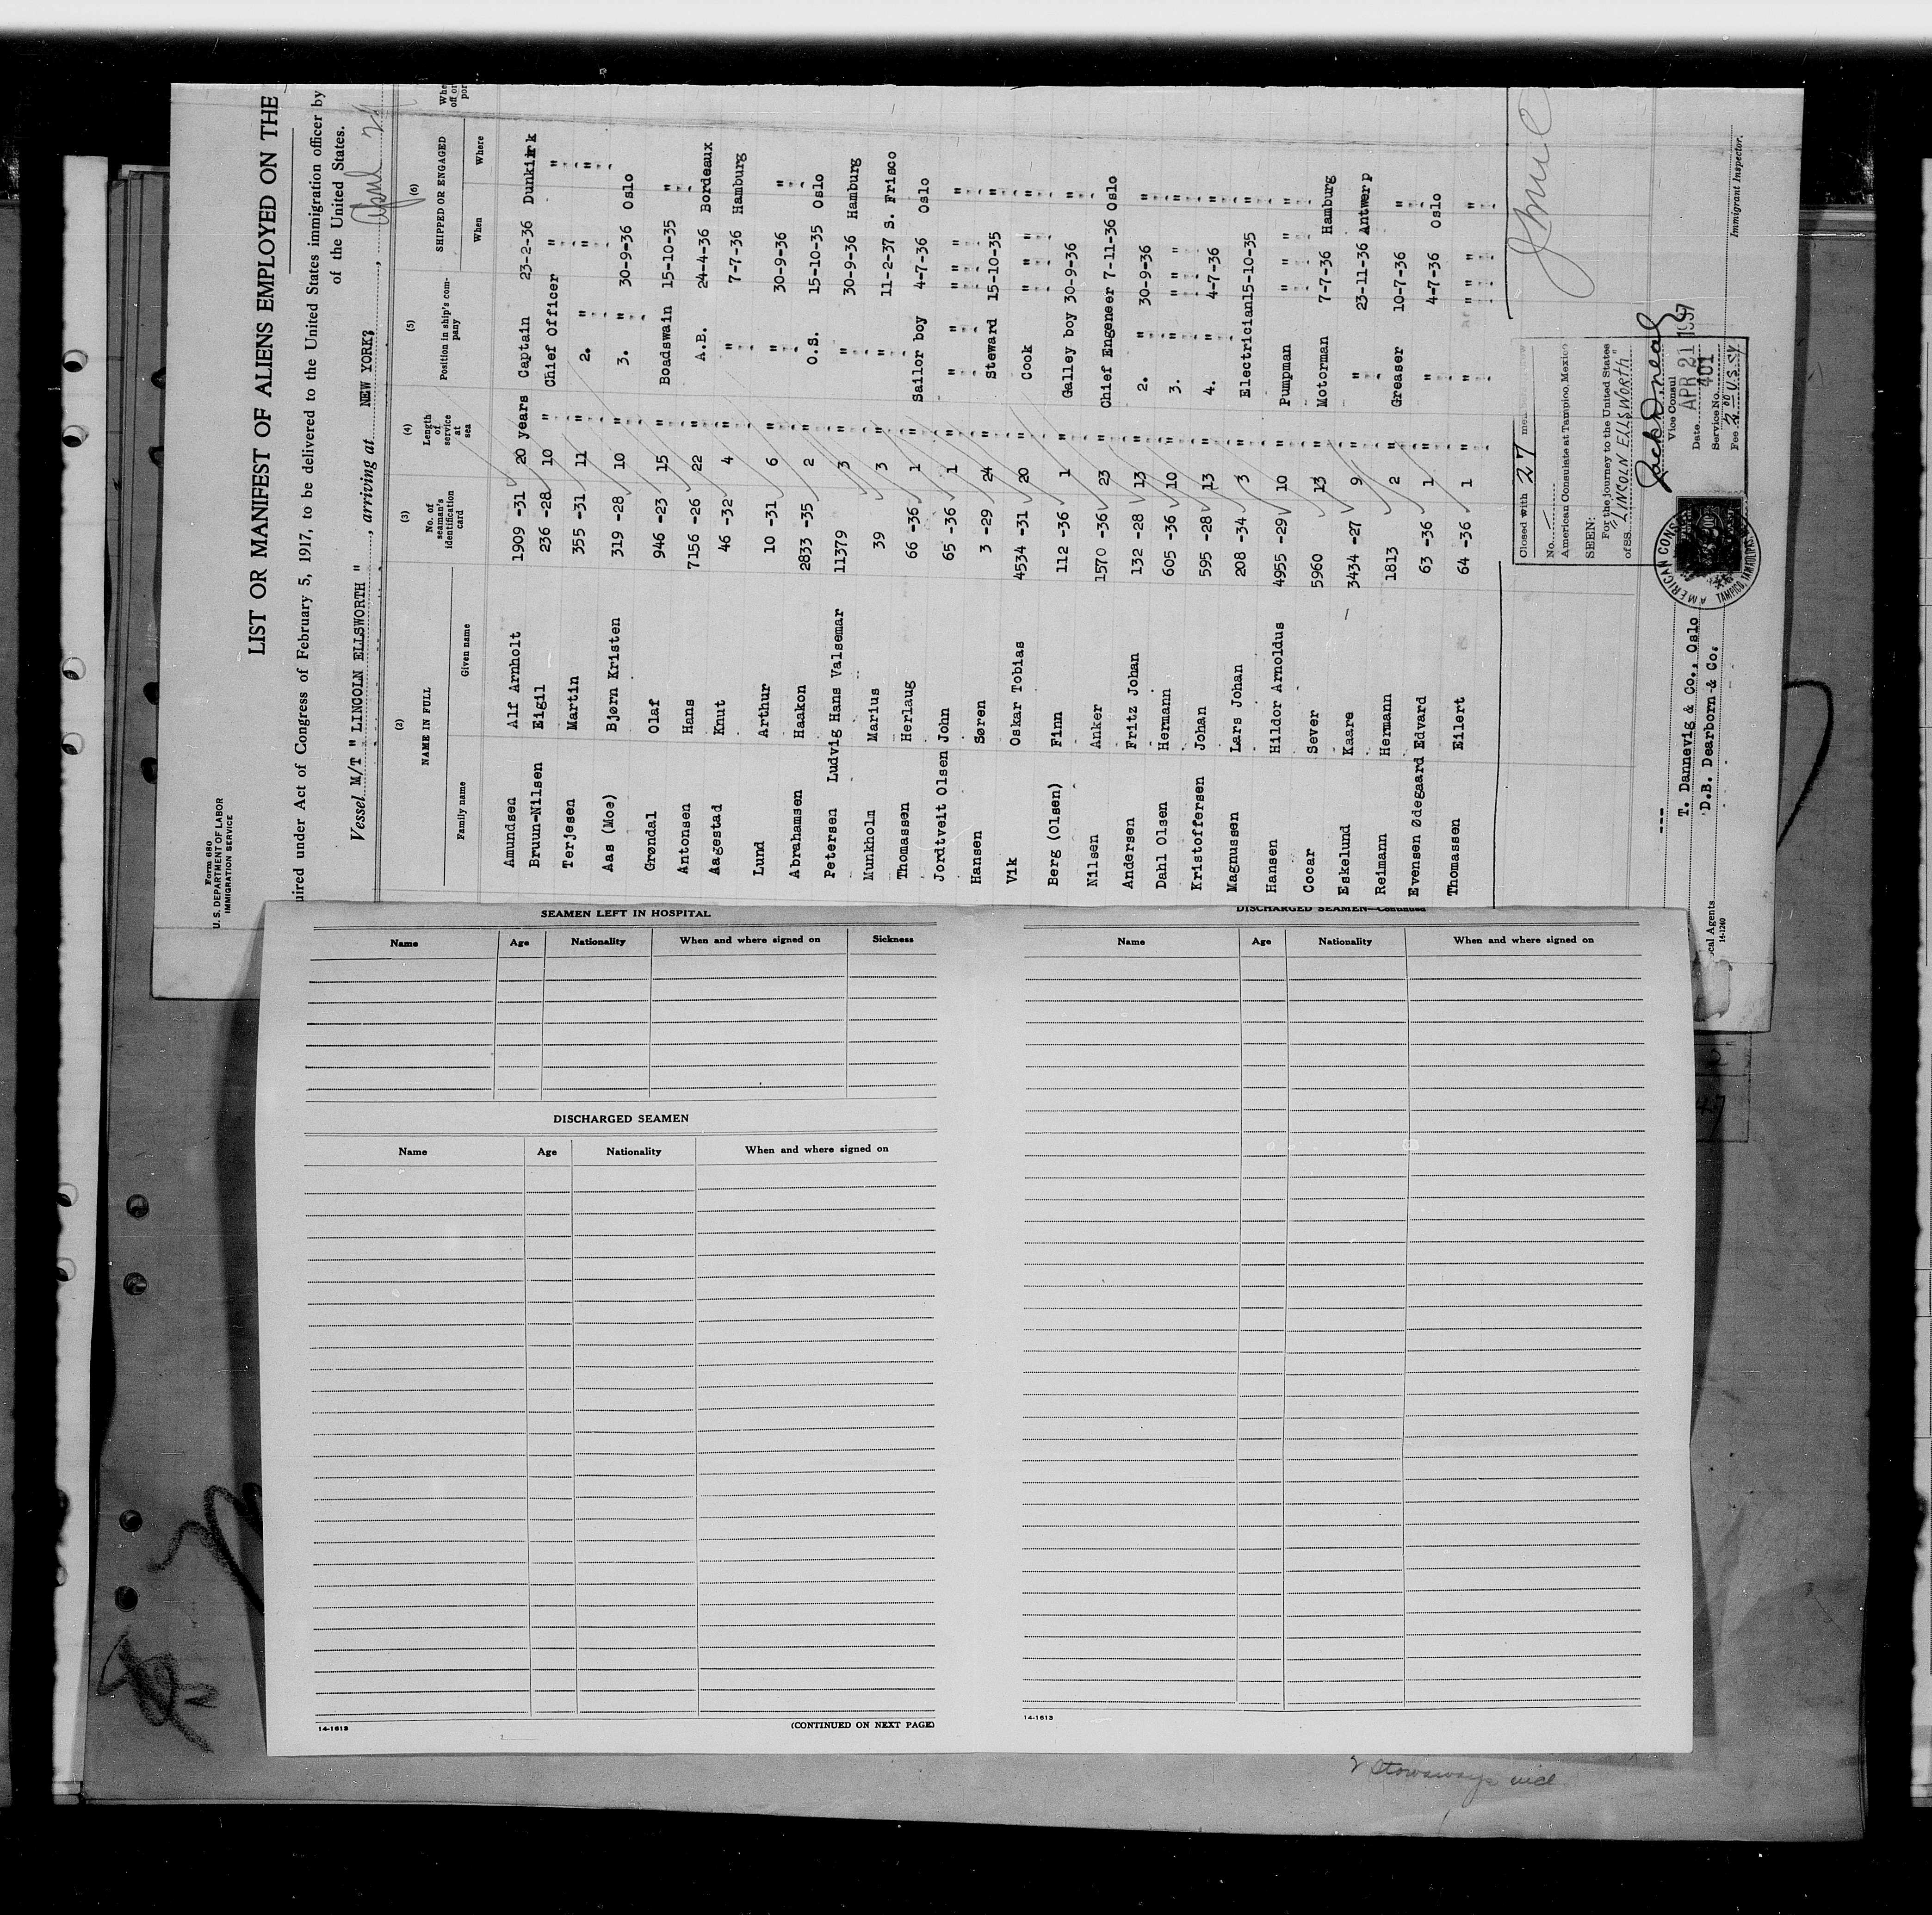 Form 680
U. S. DEPARTMENT OF LABOR
IMMIGRATION SERVICE
LIST OR MANIFEST OF ALIENS EMPLOYED ON THE
uired under Act of Congress of February 5, 1917, to be delivered to the United States immigration officer by
of the United States.
Vessel M/T " LINCOLN ELLSWORTH " , arriving at NEW YORK? , April 29
(2) (3) (4) (5) (6)
NAME IN FULL No. of seaman's identification card Length of service at sea Position in ship's company SHIPPED OR ENGAGED
Family name Given name When Where
Amundsen Alf Arnholt 1909 -31 20 years Captain 23-2-36 Dunkirk
Bruun-Nilsen Eigil 236 -28 10 " Chief Officer " "
Terjesen Martin 355 -31 11 " 2. " " "
Aas (Moe) Bjørn Kristen 319 -28 10 " 3. " 30-9-36 Oslo
Grøndal Olaf 946 -23 15 " Boadswain 15-10-35 "
Antonsen Hans 7156 -26 22 " A.B. 24-4-36 Bordeaux
Aagestad Knut 46 -32 4 " " 7-7-36 Hamburg
Lund Arthur 10 -31 6 " " 30-9-36 "
Abrahamsen Haakon 2833 -35 2 " O.S. 15-10-35 Oslo
Petersen Ludvig Hans Valsemar 11379 3 " " 30-9-36 Hamburg
Munkholm Marius 39 3 " " 11-2-37 S. Frisco
Thomassen Herlaug 66 -36 1 " Sailor boy 4-7-36 Oslo
Jordtveit Olsen John 65 -36 1 " " " " "
Hansen Søren 3 -29 24 " Steward 15-10-35 "
Vik Oskar Tobias 4534 -31 20 " Cook " " "
Berg (Olsen) Finn 112 -36 1 " Galley boy 30-9-36 "
Nilsen Anker 1570 -36 23 " Chief Engeneer 7-11-36 Oslo
Andersen Fritz Johan 132 -28 13 " 2. " 30-9-36 "
Dahl Olsen Hermann 605 -36 10 " 3. " " " "
Kristoffersen Johan 595 -28 13 " 4. " 4-7-36 "
Magnussen Lars Johan 208 -34 3 " Electrician 15-10-35 "
Hansen Hildor Arnoldus 4955 -29 10 " Pumpman " " "
Cocar Sever 5960 13 " Motorman 7-7-36 Hamburg
Eskelund Kaare 3434 -27 9 " " 23-11-36 Antwerp
Reimann Hermann 1813 2 " Greaser 10-7-36 "
Evensen Ødegaard Edvard 63 -36 1 " " 4-7-36 Oslo
Thomassen Eilert 64 -36 1 " " " " "
Closed with 27
No.
American Consulate at Tampico, Mexico
SEEN:
For the journey to the United States
of SS. "LINCOLN ELLSWORTH"
Vice Consul
Date APR 21 1937
Service No. 401
Fee
AMERICAN CONS
TAMPICO, TAMAULIPAS
T. Dannevig & Co., Oslo
D.B. Dearborn & Co.
cal Agents
14-1240
Immigrant Inspector.
SEAMEN LEFT IN HOSPITAL
Name Age Nationality When and where signed on Sickness
DISCHARGED SEAMEN
Name Age Nationality When and where signed on
14-1613 (CONTINUED ON NEXT PAGE)
DISCHARGED SEAMEN—Continued
Name Age Nationality When and where signed on
14-1613
2 Stowaways incl